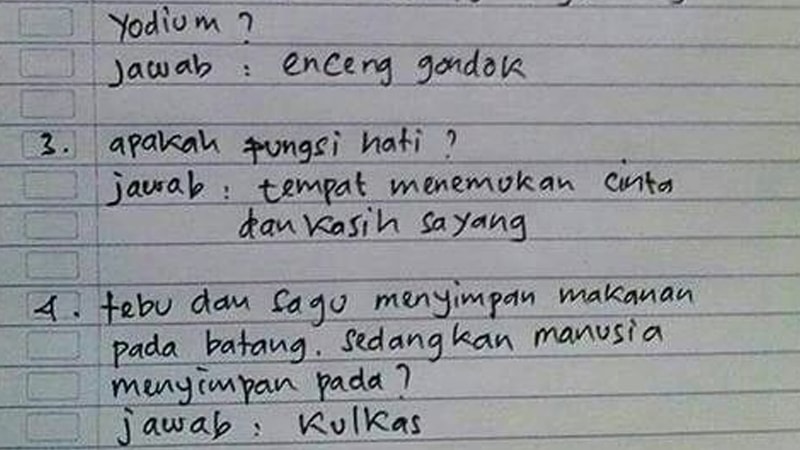 Yodium ?
jawab : enceng gondok
3. apakah fungsi hati ?
jawab : tempat menemukan cinta
dan kasih sayang
4. tebu dan sagu menyimpan makanan
pada batang. sedangkan manusia
menyimpan pada ?
jawab : Kulkas